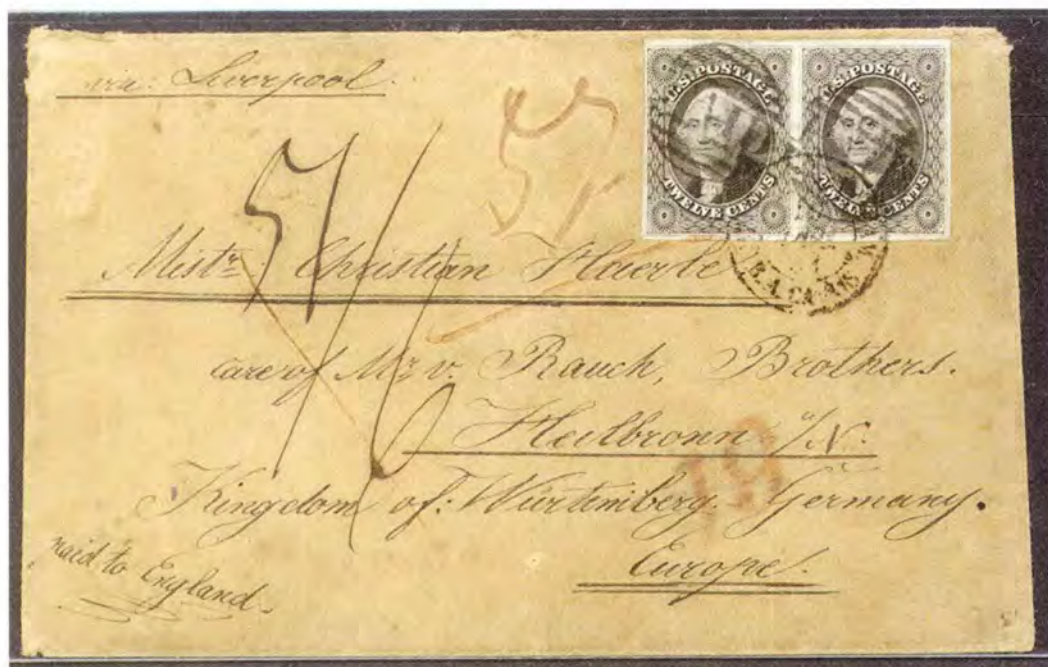 via: Liverpool.
U.S. POSTAGE
TWELVE CENTS
U.S. POSTAGE
TWELVE CENTS
57
Mistr Christian Haerle
care of Mr v. Rauch, Brothers.
Heilbronn a/N.
19
Kingdom of: Würtemberg. Germany.
Europe.
paid to England.